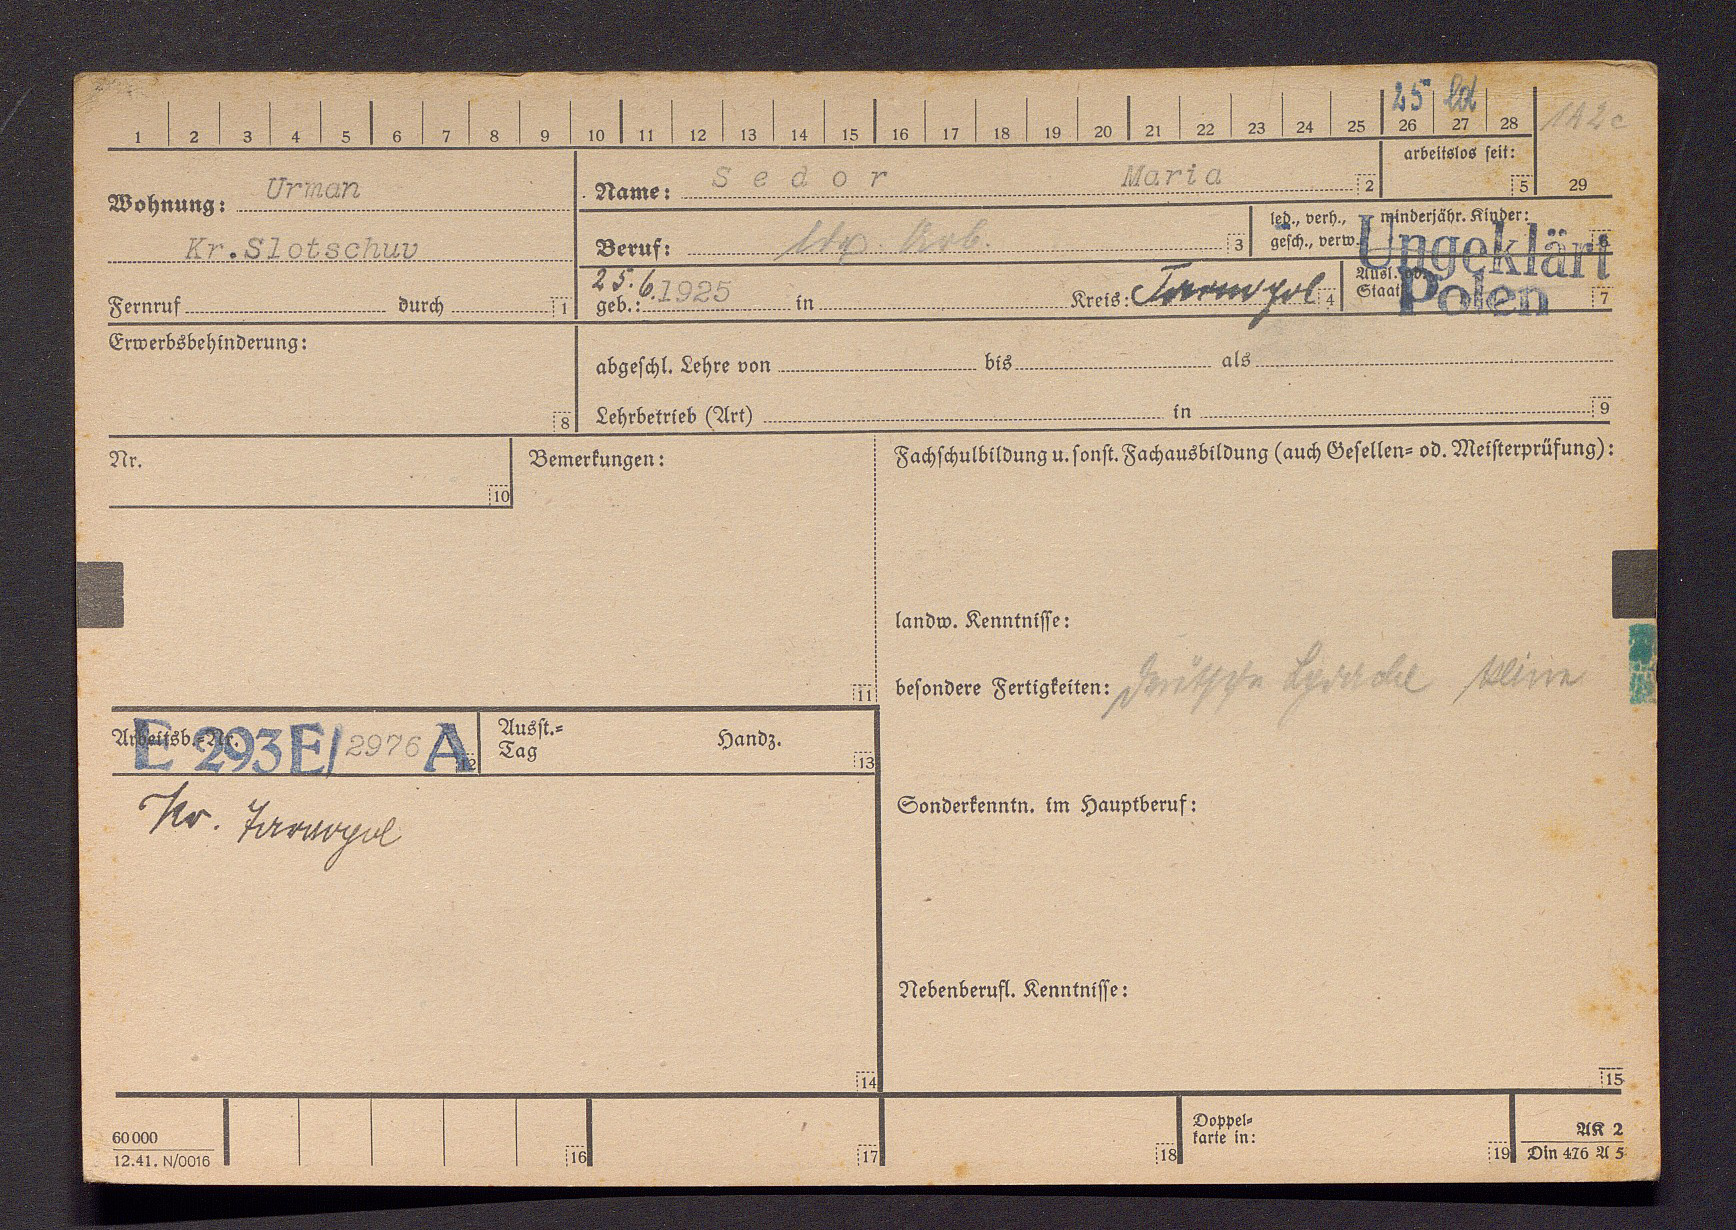 25 led
1 2 3 4 5 6 7 8 9 10 11 12 13 14 15 16 17 18 19 20 21 22 23 24 25 26 27 28 142c
arbeitslos seit:
5 29
Wohnung: Urman
Kr.Slotschuv
Fernruf durch 1
Name: Sedor Maria 2
Beruf: ldw. Arb. 3
led., verh., minderjähr. Kinder:
gesch., verw. 6
25.6.
geb.: 1925 in Kreis: Tarnopol 4
Ausl. od.
Staat 7
Ungeklärt
Polen
Erwerbsbehinderung:
8
abgeschl. Lehre von bis als
Lehrbetrieb (Art) in 9
Nr.
10
Bemerkungen:
11
Fachschulbildung u. sonst. Fachausbildung (auch Gesellen- od. Meisterprüfung):
landw. Kenntnisse:
besondere Fertigkeiten: Deutsche Sprache keine
Arbeitsb.-Nr. 12
E 293 E/ 2976 A
Ausst.-
Tag Handz.
13
Kr. Tarnopol
14
Sonderkenntn. im Hauptberuf:
Nebenberufl. Kenntnisse:
15
60 000
12.41. N/0016
16 17 18
Doppel-
karte in:
19
AK 2
Din 476 A 5